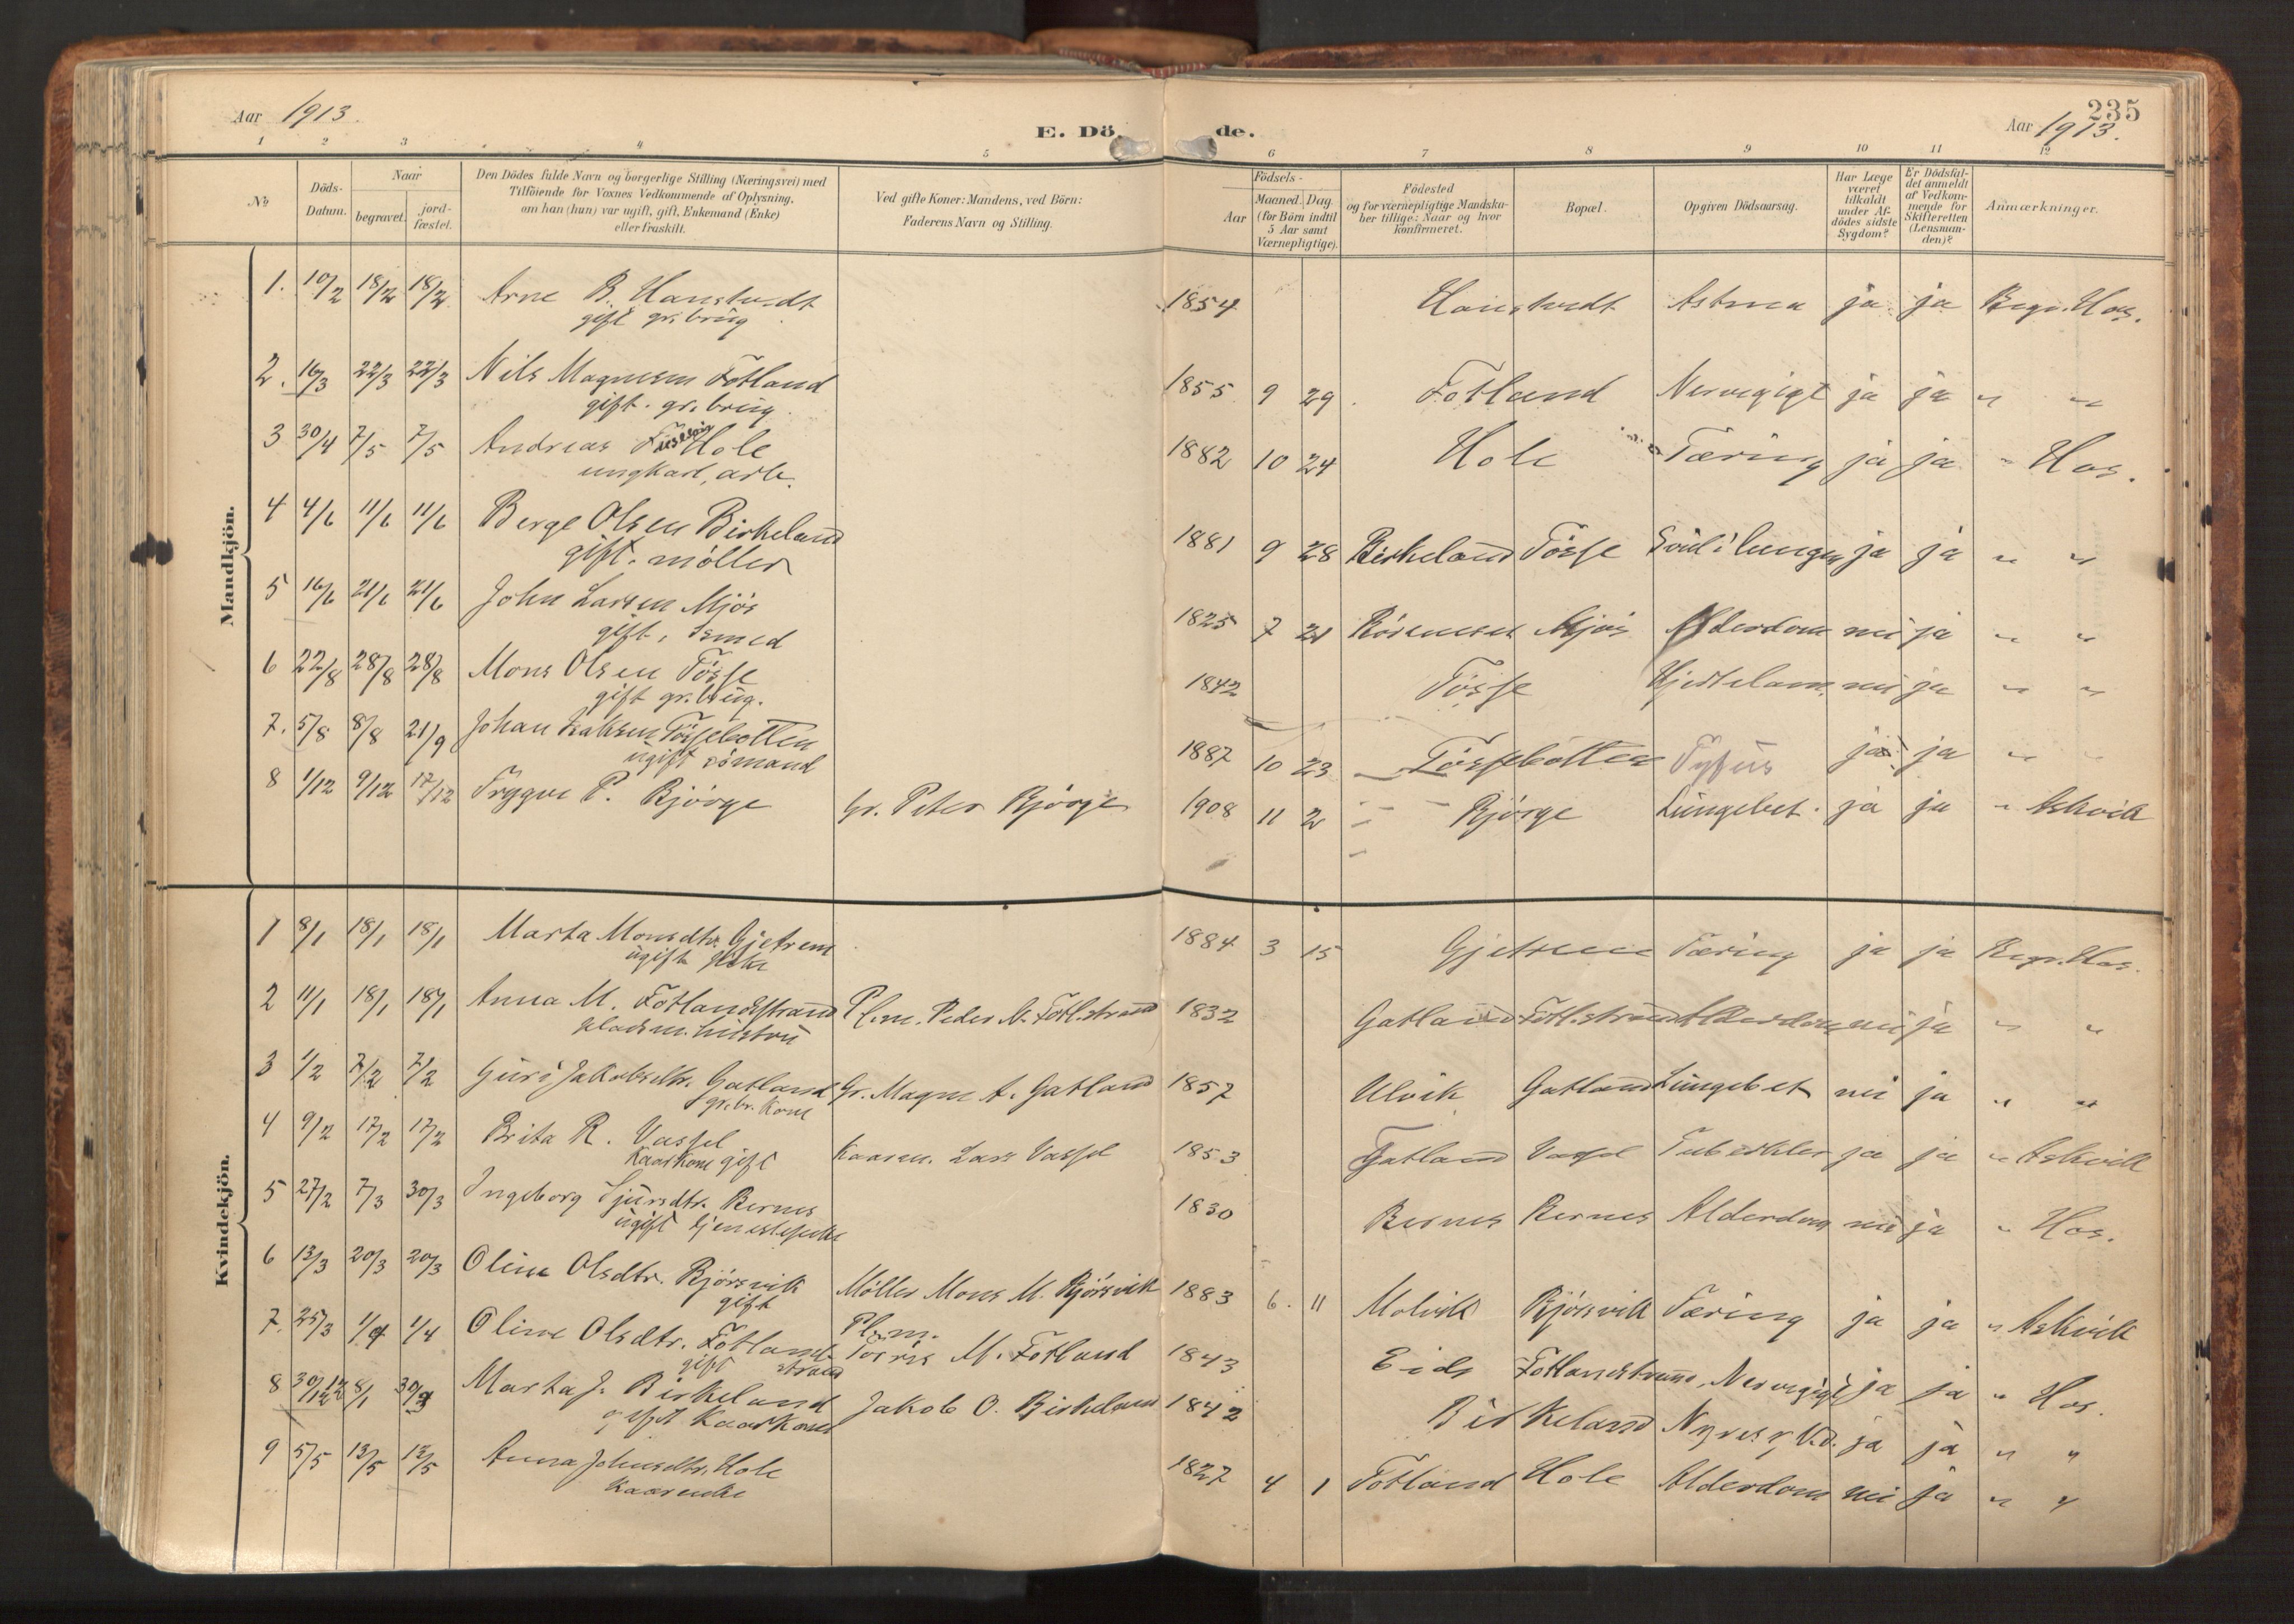 235
Aar 1913.
E. Dö de.
Aar 1913.
1 2 3 4 5 6 7 8 9 10 11 12
№
Döds-Datum.
Naar
begravet.
jord-fæstet.
Den Dödes fulde Navn og borgerlige Stilling (Næringsvei) med
Tilföiende for Voxnes Vedkommende af Oplysning,
om han (hun) var ugift, gift, Enkemand (Enke)
eller fraskilt.
Ved gifte Koner: Mandens, ved Börn:
Faderens Navn og Stilling.
Födsels-
Aar
Maaned. Dag.
(for Börn indtil
5 Aar samt
Værnepligtige).
Födested
og for værnepligtige Mandska-
ber tillige: Naar og hvor
konfirmeret.
Bopæl.
Opgiven Dödsaarsag.
Har Læge
været
tilkaldt
under Af-
dödes sidste
Sygdom?
Er Dödsfal-
det anmeldt
af Vedkom-
mende for
Skifteretten
(Lensman-
den)?
Anmærkninger.
Mandkjön.
1. 10/2 18/2 18/2 Arne B. Hanstvedt 1854 Hanstvedt Astma ja ja Begr. Hos.
gift gr.brug
2. 16/3 22/3 22/3 Nils Magnesen Fotland 1855 9 29 Fotland Nervegigt ja ja " "
gift. gr.brug.
3 30/4 7/5 7/5 Andreas Hole 1882 10 24 Hole Tæring ja ja " Hos.
ungkarl, arb.
4 4/6 11/6 11/6 Berge Olsen Birkeland 1881 9 28 Birkeland Tösse Svul i lungen ja ja " "
gift. möller
5 16/6 21/6 21/6 John Larsen Mjös 1825 7 21 Mjös Alderdom nei ja " "
gift, smed
6 22/8 28/8 28/8 Mons Olsen Tösse 1842 Tösse Hjertelam. nei ja " "
gift gr.brug.
7. 5/8 8/8 21/9 Johan Isaksen Tössebotten 1887 10 23 Tössebotten Tyfus ja ja " "
ugift sömand
8 1/12 9/12 17/12 Trygve P. Björge Gr. Peter Björge 1908 11 2 Björge Lungebet. ja ja " Askvik
Kvindekjön.
1 8/1 18/1 18/1 Marta Monsdtr. Gjetrem 1884 3 15 Gjetrem Tæring ja ja Begr. Hos.
ugift
2 11/1 18/1 18/1 Anna M. Fotlandsstrand Pl.m. Peder N. Fotl.strand 1832 Gatland Fotl.strand Alderdom nei ja " "
pladsm. hustru
3 1/2 7/2 7/2 Guri Jakobsdtr. Gatland Gr. Magne A. Gatland 1857 Ulvik Gatland Lungebet nei ja " "
gr.br. kone
4 9/2 17/2 17/2 Brita R. Vassel Kaarm. Lars Vassel 1853 Fatland Vassel Tuberkler ja ja " Askvik
Kaarkone gift
5 27/2 7/3 30/3 Ingeborg Sjursdtr. Bernes 1830 Bernes Bernes Alderdom nei ja " Hos.
ugift tjenestepike
6 13/3 20/3 20/3 Oline Olsdtr. Björsvik Möller Mons M. Björsvik 1883 6. 11 Molvik Björsvik Tæring ja ja " Askvik
gift
7. 25/3 1/4 1/4 Oline Olsdtr. Fotland- Pl.m. M. Fotland 1843 Eide Fotlandstrand, Nervegigt ja ja " Hos.
gift strand
8 30/12 12 8/1 30/3 Marta J. Birkeland Jakob O. Birkeland 1842 Birkeland Nyres. V.d. ja ja " "
gift Kaarkone
9 5/5 13/5 13/5 Anna Johnsdtr. Hole 1827 4 1 Totland Hole Alderdom nei ja " "
Kaarenke